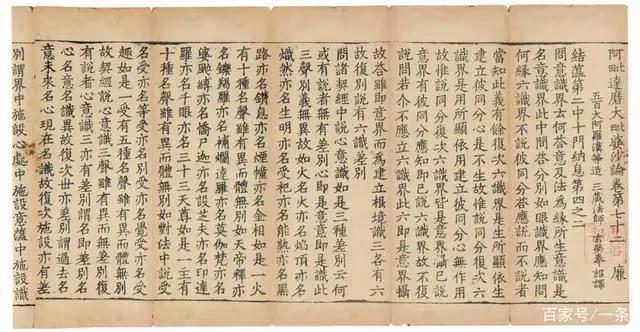 阿毗達磨大毗婆沙論卷第七十二 廉
五百大阿羅漢等造 三藏法師玄奘奉 詔譯
結蘊第二中十門納息第四之二
問意識界云何答意及法為緣所生意識是
名意識界此中問答分別如眼識界應知問
何緣六識界不說彼同分答應說而不說者
當知此義有餘復次六識界是生所顯依生
建立彼同分心是不生故惟說生復次六
識界是用所顯依用建立彼同分心無作用
故惟說識界復次六識界皆是意界攝已說
意界有彼同分應知即已說六識故不復
說問若尒不應立六識界此六即是意界攝
故答雖即意界而為建立根境識三各有六
故復別說有六識界
問諸契經中說心意識如是三種差別云何
或有說者無有差別心即是意意即是識此
三聲別義無異故如火名火亦名焰頂亦名
熾然亦名生明亦名受祀亦名能熟亦名黑
路亦名鑽息亦名煙幢亦名金相如是一火
有十種名聲雖有異而體無別如天帝釋亦
名鑠羯羅亦名補爛達羅亦名莫伽梵亦名
婆颰縛亦名憍尸迦亦名設芝夫亦名印達
羅亦名千眼亦名三十三天尊如是一主有
十種名聲雖有異而體無別如對法中說受
名受亦名等受亦名別受亦名覺受亦名受
趣如是一受有五種名聲雖有異而無差別
故契經說心意識三聲雖有異而無差別復
有說者心意識三亦有差別謂名即差別名
心名意名識異故復次世亦差別謂過去名
意未來名心現在名識故復次施設亦有差
別謂界中施設心處中施設意蘊中施設識
百家号/一条